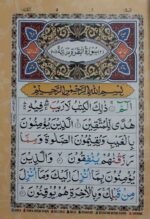 بِسْمِ اللهِ الرَّحْمٰنِ الرَّحِيْمِ
الٓمّٓ ذٰلِكَ الْكِتٰبُ لَا رَيْبَ فِيْهِ
هُدًى لِّلْمُتَّقِيْنَ الَّذِيْنَ يُؤْمِنُوْنَ
بِالْغَيْبِ وَيُقِيْمُوْنَ الصَّلٰوةَ وَمِمَّا
رَزَقْنٰهُمْ يُنْفِقُوْنَ وَالَّذِيْنَ
يُؤْمِنُوْنَ بِمَآ اُنْزِلَ اِلَيْكَ وَمَآ اُنْزِلَ
مِنْ قَبْلِكَ وَبِالْاٰخِرَةِ هُمْ يُوْقِنُوْنَ